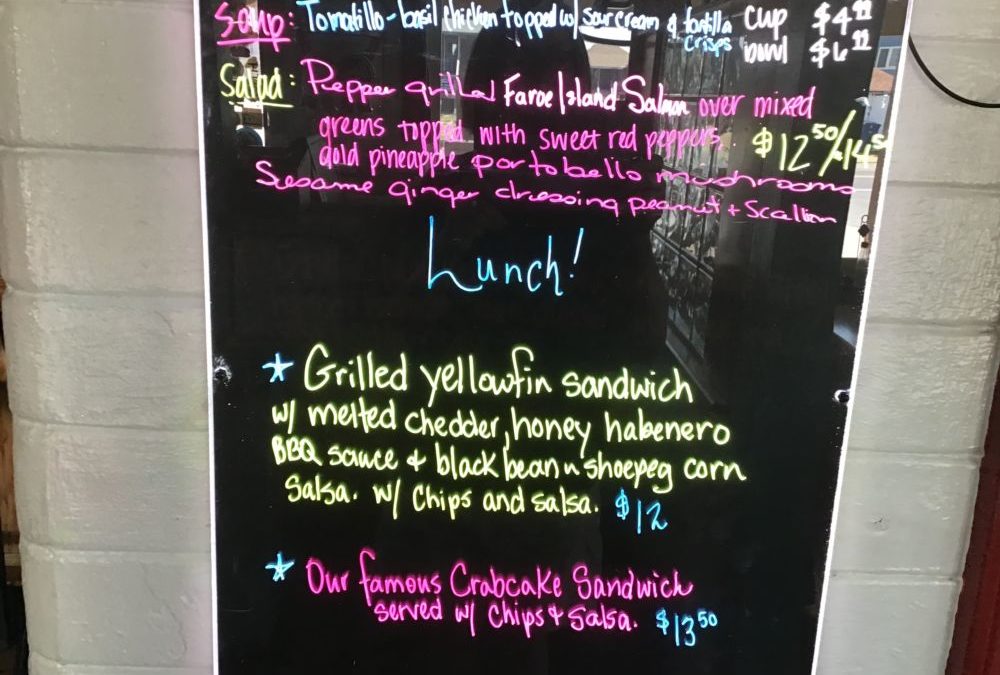 Soup: Tomatillo-basil chicken topped w/ sour cream & tortilla crisps cup $4.99
bowl $6.99
Salad: Pepper grilled Faroe Island Salmon over mixed
greens topped with sweet red peppers, $12.50/14.5
gold pineapple portobello mushrooms
Sesame ginger dressing peanut + Scallion
Lunch!
* Grilled yellowfin sandwich
w/ melted chedder, honey habenero
BBQ sauce & black bean n shoepeg corn
Salsa. w/ Chips and salsa. $12
* Our famous Crabcake Sandwich
served w/ Chips & Salsa. $13.50